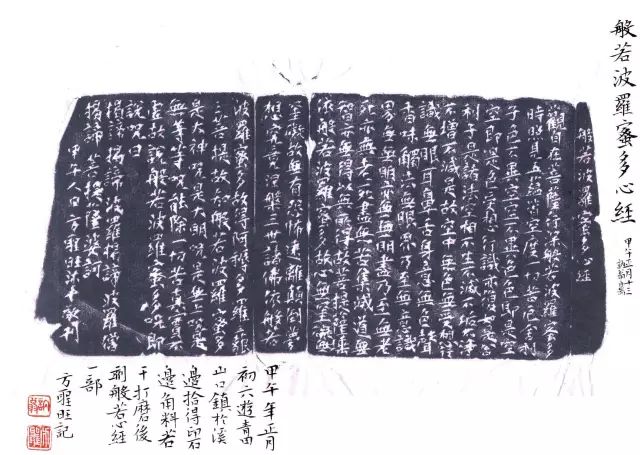 般若波羅蜜多心經
甲午正月十三
般若波羅蜜多心經
觀自在菩薩行深般若波羅蜜多
時照見五蘊皆空度一切苦厄舍利
子色不異空空不異色色即是空
空即是色受想行識亦復如是舍
利子是諸法空相不生不滅不垢不淨
不增不減是故空中無色無受想行
識無眼耳鼻舌身意無色聲
香味觸法無眼界乃至無意識
界無無明亦無無明盡乃至無老
死亦無老死盡無苦集滅道無
智亦無得以無所得故菩提薩埵
依般若波羅蜜多故心無罣礙無
罣礙故無有恐怖遠離顛倒夢
想究竟涅槃三世諸佛依般若
波羅蜜多故得阿耨多羅三藐
三菩提故知般若波羅蜜多
是大神咒是大明咒是無上咒是
無等等咒能除一切苦真實不
虛故說般若波羅蜜多咒即
說咒曰
揭諦揭諦波羅揭諦波羅僧
揭諦菩提薩婆訶
甲午人日方聖旺沐手敬刊
甲午年正月
初六遊青田
山口鎮於溪
邊拾得印石
邊角料若
干打磨後
刻般若心經
一部
方聖旺記